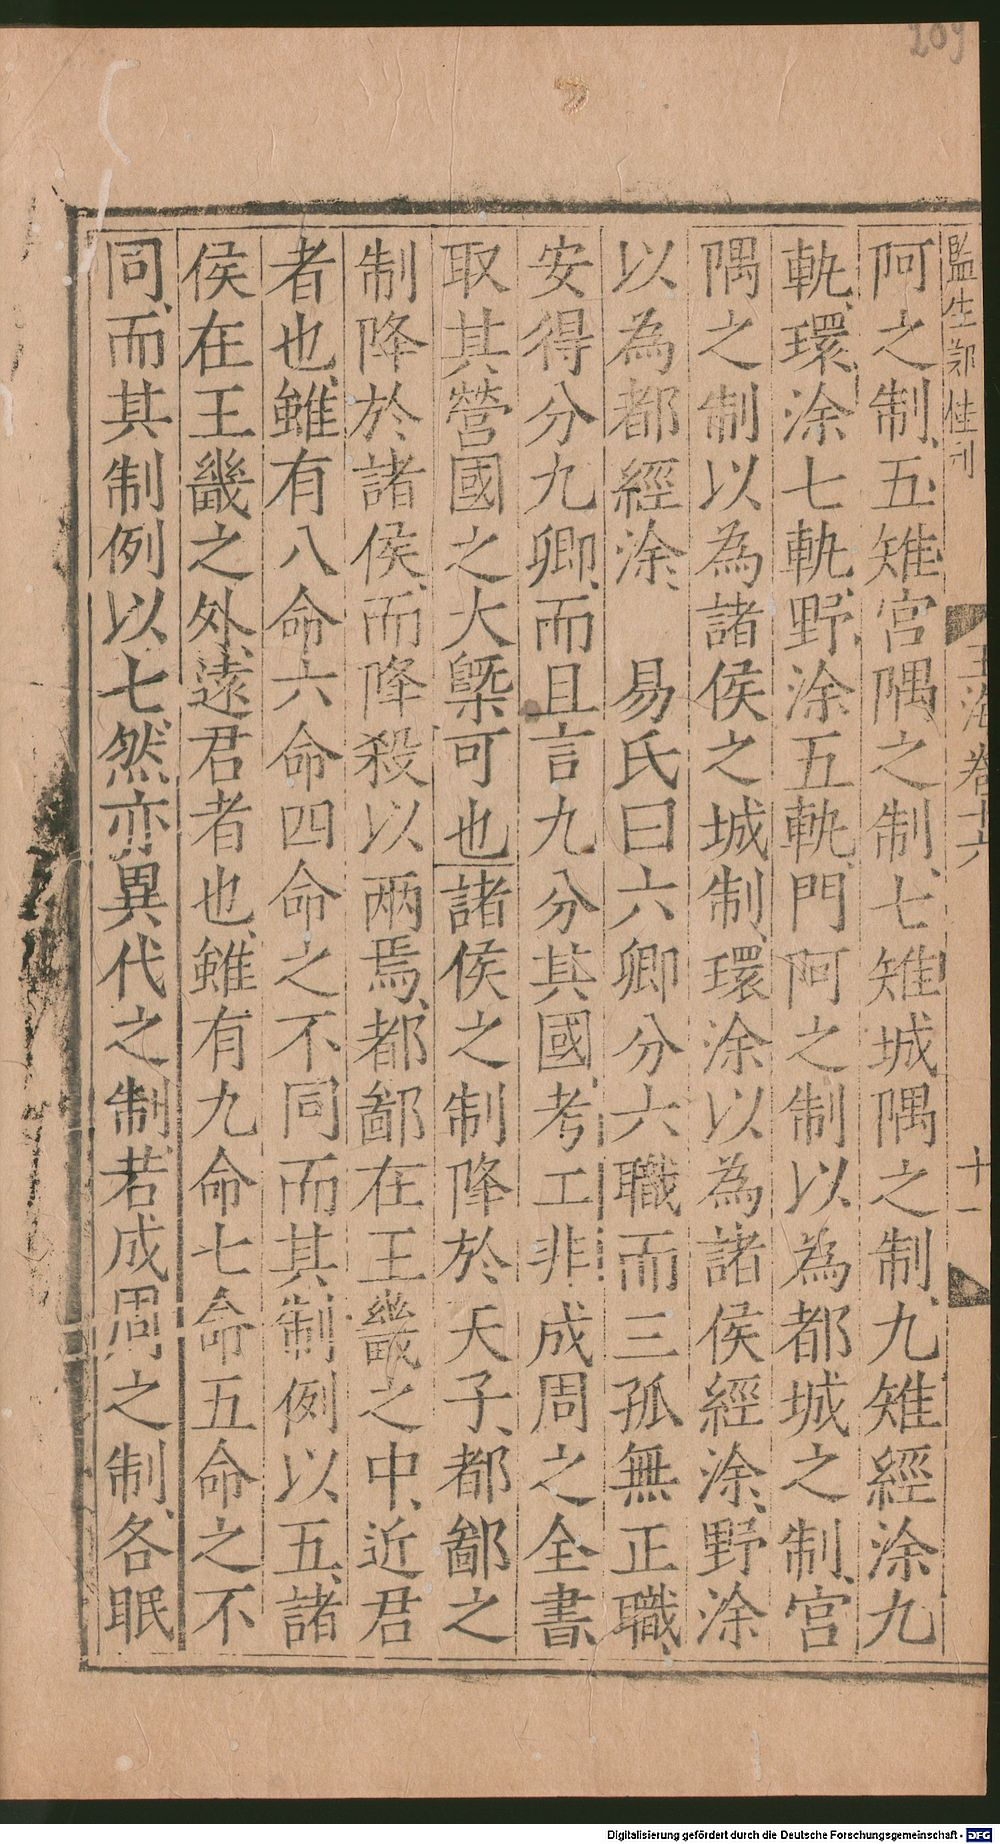 209
監生鄭佳刊
玉海卷十六
十一
阿之制五雉宮隅之制七雉城隅之制九雉經涂九
軌環涂七軌野涂五軌門阿之制以為都城之制宮
隅之制以為諸侯之城制環涂以為諸侯經涂野涂
以為都經涂　易氏曰六卿分六職而三孤無正職
安得分九卿而且言九分其國考工非成周之全書
取其營國之大槩可也諸侯之制降於天子都鄙之
制降於諸侯而降殺以两焉都鄙在王畿之中近君
者也雖有八命六命四命之不同而其制例以五諸
侯在王畿之外遠君者也雖有九命七命五命之不
同而其制例以七然亦異代之制若成周之制各眂
Digitalisierung gefördert durch die Deutsche Forschungsgemeinschaft - DFG